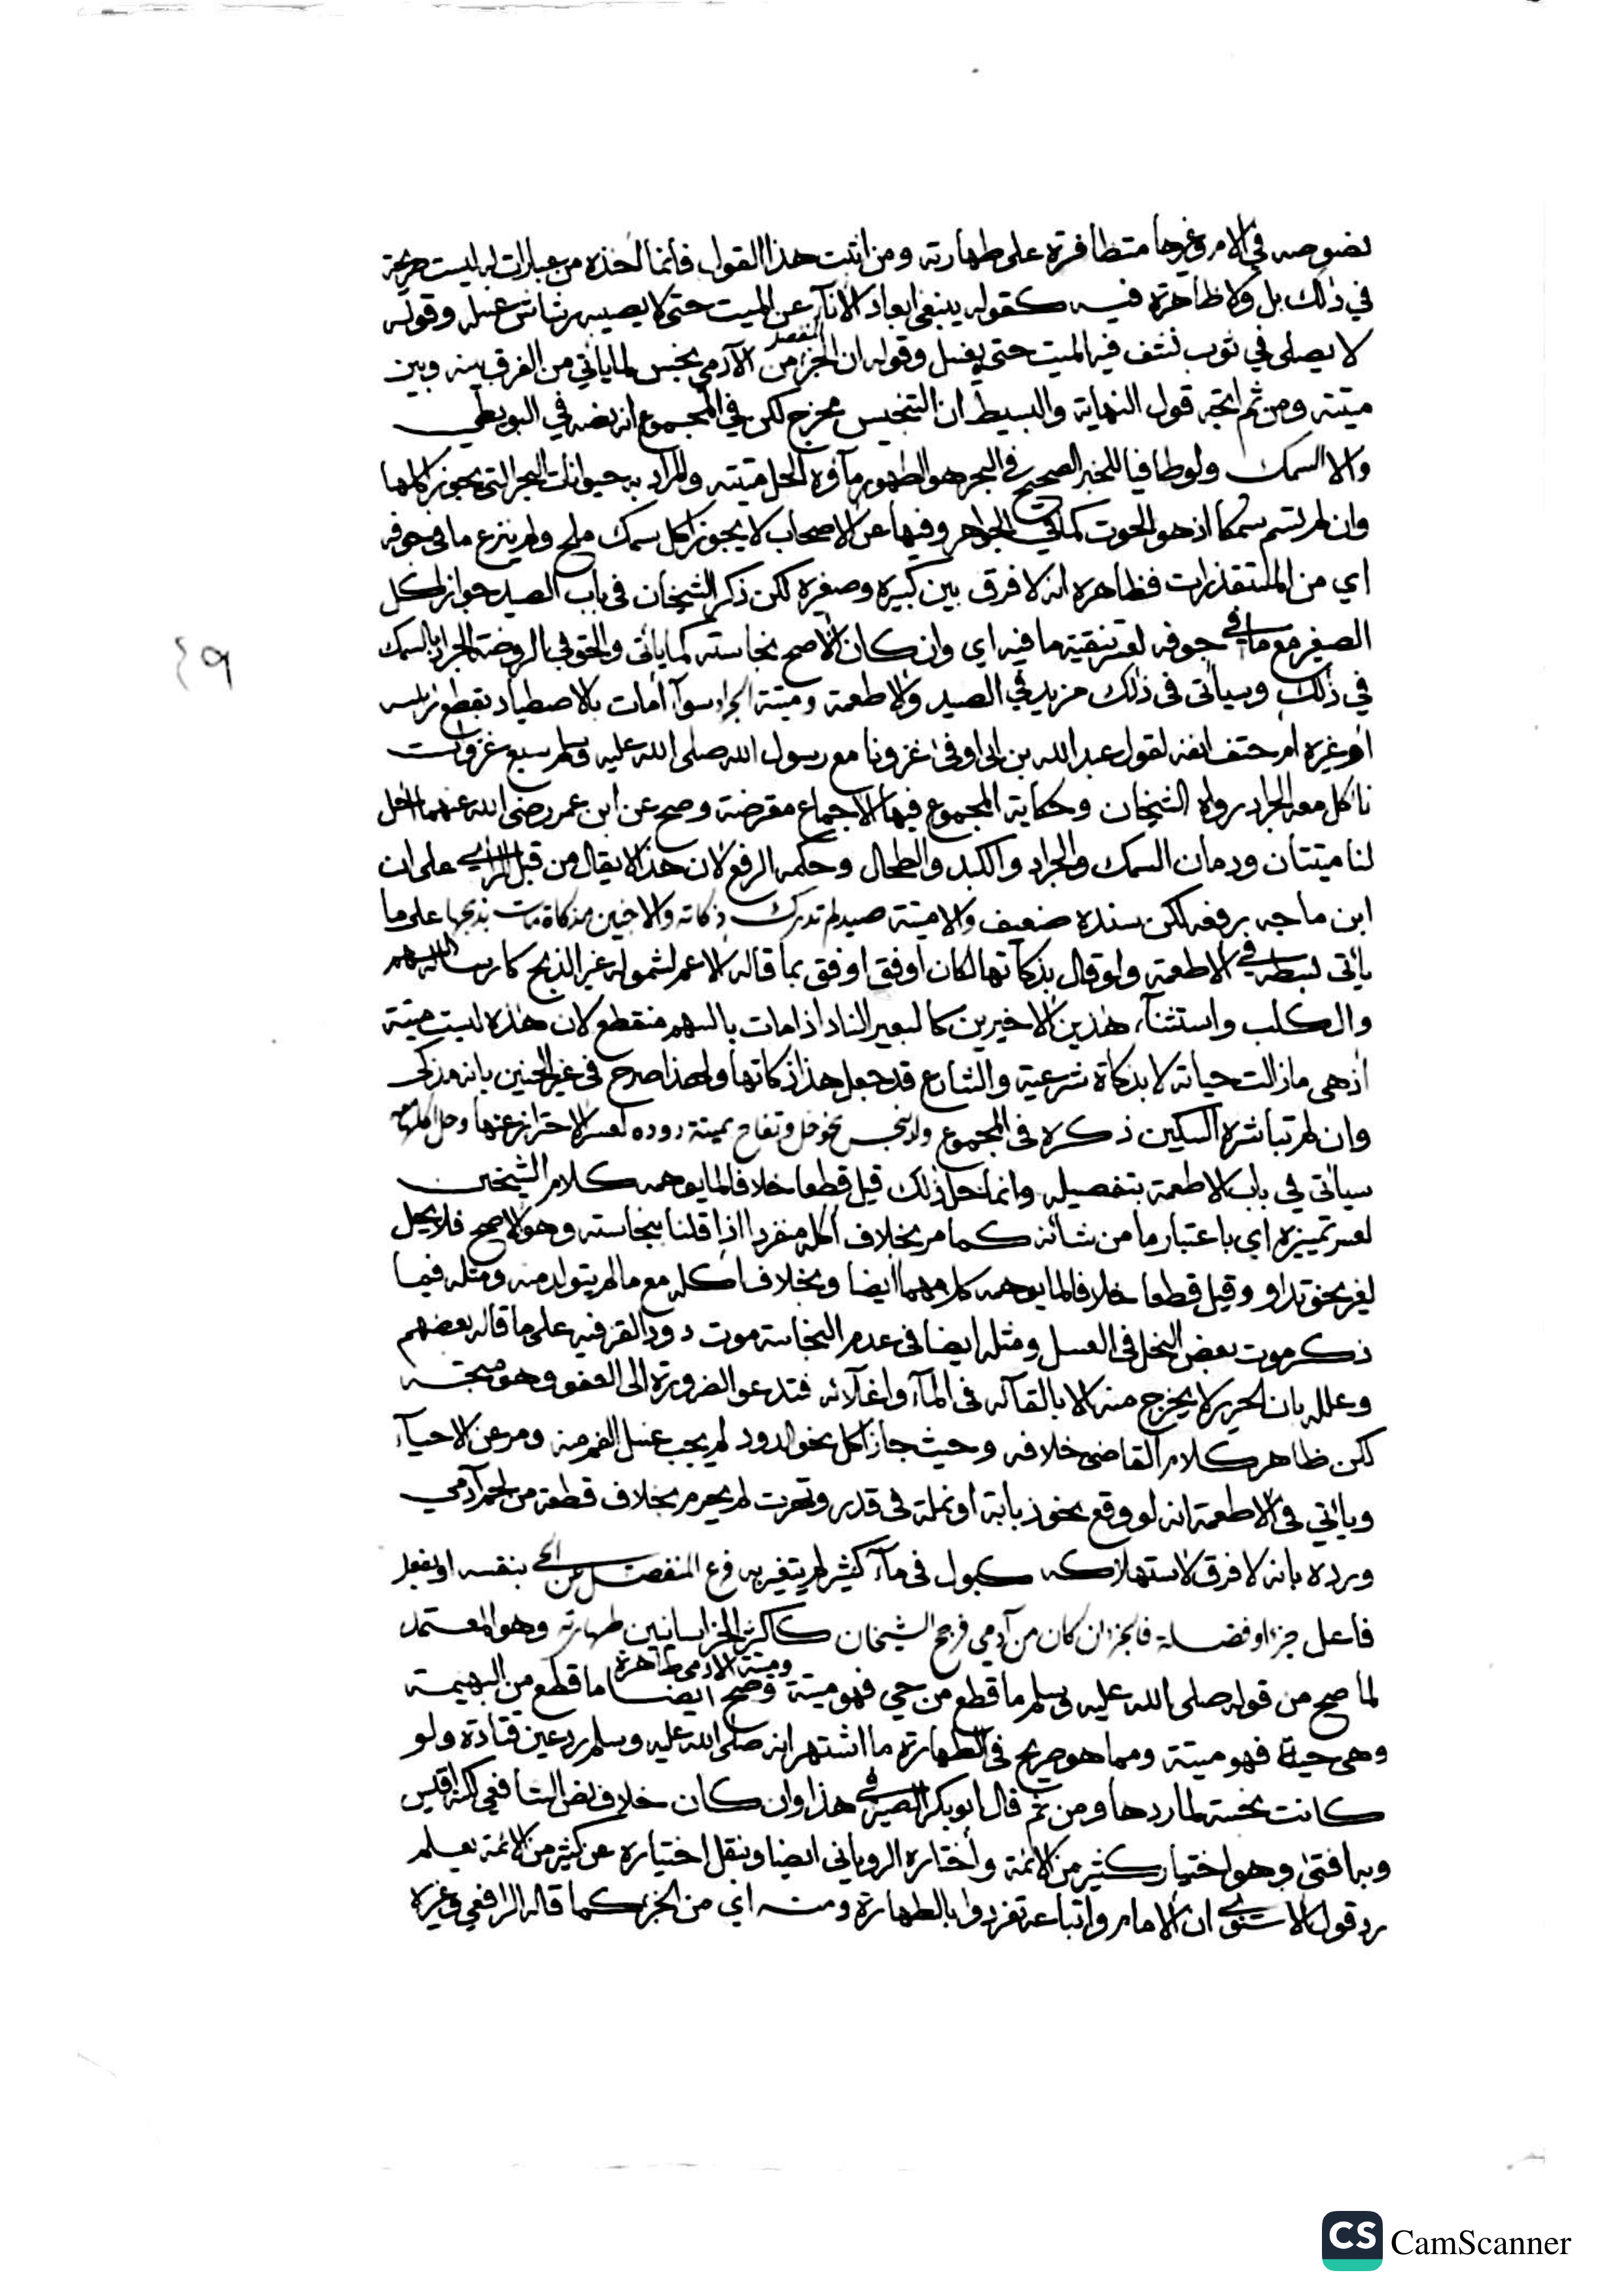 نصوصه في الام وغيرها متظافرة على طهارته ومن اثبت هذا القول فانما اخذه من عبارات له ليست صريحة
في ذلك بل ولا ظاهرة فيه كقوله ينبغي ابعاد الاناء عن الميت حتى لا يصيبه رشاش غسله وقوله
لا يصلى في ثوب نشف فيه الميت حتى يغسل وقوله ان الجزء المنفصل من الآدمي نجس لما يأتي من الفرق بينه وبين
ميتته ومن ثم اتجه قول النهاية والبسيط ان التنجيس مخرج لكن في المجموع انه نصه في البويطي
والا السمك ولو طافيا للخبر الصحيح في البحر هو الطهور مآؤه الحل ميتته والمراد به حيوانات البحر التي يجوز اكلها
وان لم تسم سمكا اذ هو الحوت كما في الجواهر وفيها عن الاصحاب لا يجوز اكل سمك ملح ولم ينزع ما في جوفه
اي من المستقذرات فظاهره انه لا فرق بين كبيره وصغيره لكن ذكر الشيخان في باب الصيد جواز اكل
الصغير مع ما في جوفه لعسر تنقية ما فيه اي وان كان الأصح نجاسته كما يأتي والحق في الروضة الجراد بالسمك
في ذلك وسيأتي في ذلك مزيد في الصيد والاطعمة وميتة الجراد سوآ أمات بالاصطياد بقطع رأسه
او غيره ام حتف انفه لقول عبد الله بن ابي اوفى غزونا مع رسول الله صلى الله عليه وسلم سبع غزوات
نأكل معه الجراد رواه الشيخان وحكاية المجموع فيها الاجماع معترضة وصح عن ابن عمر رضي الله عنهما احل
لنا ميتتان ودمان السمك والجراد والكبد والطحال وحكمه الرفع لان هذا لا يقال من قبل الرأي على ان
ابن ماجه رفعه لكن سنده ضعيف والا ميتة صيد لم تدرك ذكاته والا جنين مذكاة مات بذبحها على ما
يأتي بسطه في الاطعمة ولو قال بذكاتها لكان اوفق اوفق بما قاله الاعم لشموله غير الذبح كارسال السهم
والكلب واستثنآء هذين الاخيرين كالبعير الناد اذا مات بالسهم منقطع لان هذه ليست ميتة
اذ هي ما زالت حياته لا بذكاة شرعية والشارع قد جعل هذا ذكاتها ولهذا صرح في خبر الجنين بانه مذكى
وان لم تباشره السكين ذكره في المجموع ولا ينجس نحو خل وتفاح بميتة دوده لعسر الاحتراز عنها وحل اكلها معه
سيأتي في باب الاطعمة بتفصيله وانما حل ذلك قيل قطعا خلافا لما يوهمه كلام الشيخين
لعسر تمييزه اي باعتبار ما من شأنه كما مر بخلاف اكله منفردا اذا قلنا بنجاسته وهو الاصح فلا يحل
لغير نحو تداو وقيل قطعا خلافا لما يوهمه كلامهما ايضا وبخلاف اكله مع ما لم يتولد منه ومثله فيما
ذكر موت بعض النحل في العسل ومثله ايضا في عدم النجاسة موت دود القز فيه على ما قاله بعضهم
وعلله بان الحرير لا يخرج منه الا بالقآئه في المآء واغلآئه فتدعو الضرورة الى العفو وهو متجه
لكن ظاهر كلام القاضي خلافه وحيث جاز اكل نحو الدود لم يجب غسل الفم منه ومر عن الاحيآء
ويأتي في الاطعمة انه لو وقع نحو ذبابة او نملة في قدر وتهرت لم يحرم بخلاف قطعة من لحم آدمي
ويرده بانه لا فرق لاستهلاكه كبول في مآء كثير لم يتغير به فرع المنفصل من الحي بنفسه او بفعل
فاعل جزء او فضلة فالجزء ان كان من آدمي فرجح الشيخان كاكثر الخراسانيين طهارته وهو المعتمد
لما صح من قوله صلى الله عليه وسلم ما قطع من حي فهو ميتة وميتة الادمي طاهرة وصح ايضا ما قطع من البهيمة
وهي حية فهو ميتة ومما هو صريح في الطهارة ما اشتهر انه صلى الله عليه وسلم رد عين قتادة ولو
كانت نجسة لما ردها ومن ثم قال ابو بكر الصيرفي هذا وان كان خلاف نص الشافعي لكنه اقيس
وبه افتى وهو اختيار كثير من الائمة واختاره الروياني ايضا وبنقل اختياره عن كثير من الائمة يعلم
رد قول الاسنوي ان الامام واتباعه تفردوا بالطهارة ومنه اي من الجزء كما قاله الرافعي وغيره
٤٩
CS CamScanner